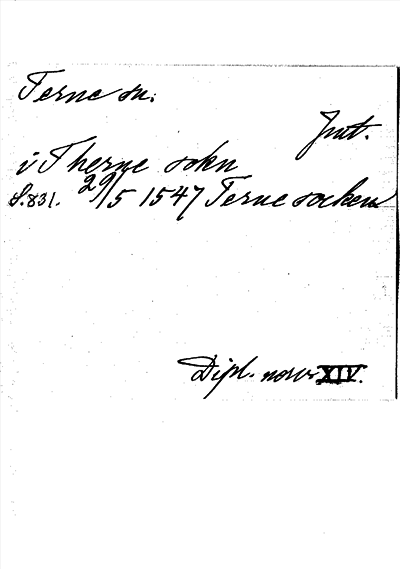 Terne sn:
Jmt.
i Therne sokn
S.831. 29/5 1547 Terne socken
Dipl. norv. XIV.